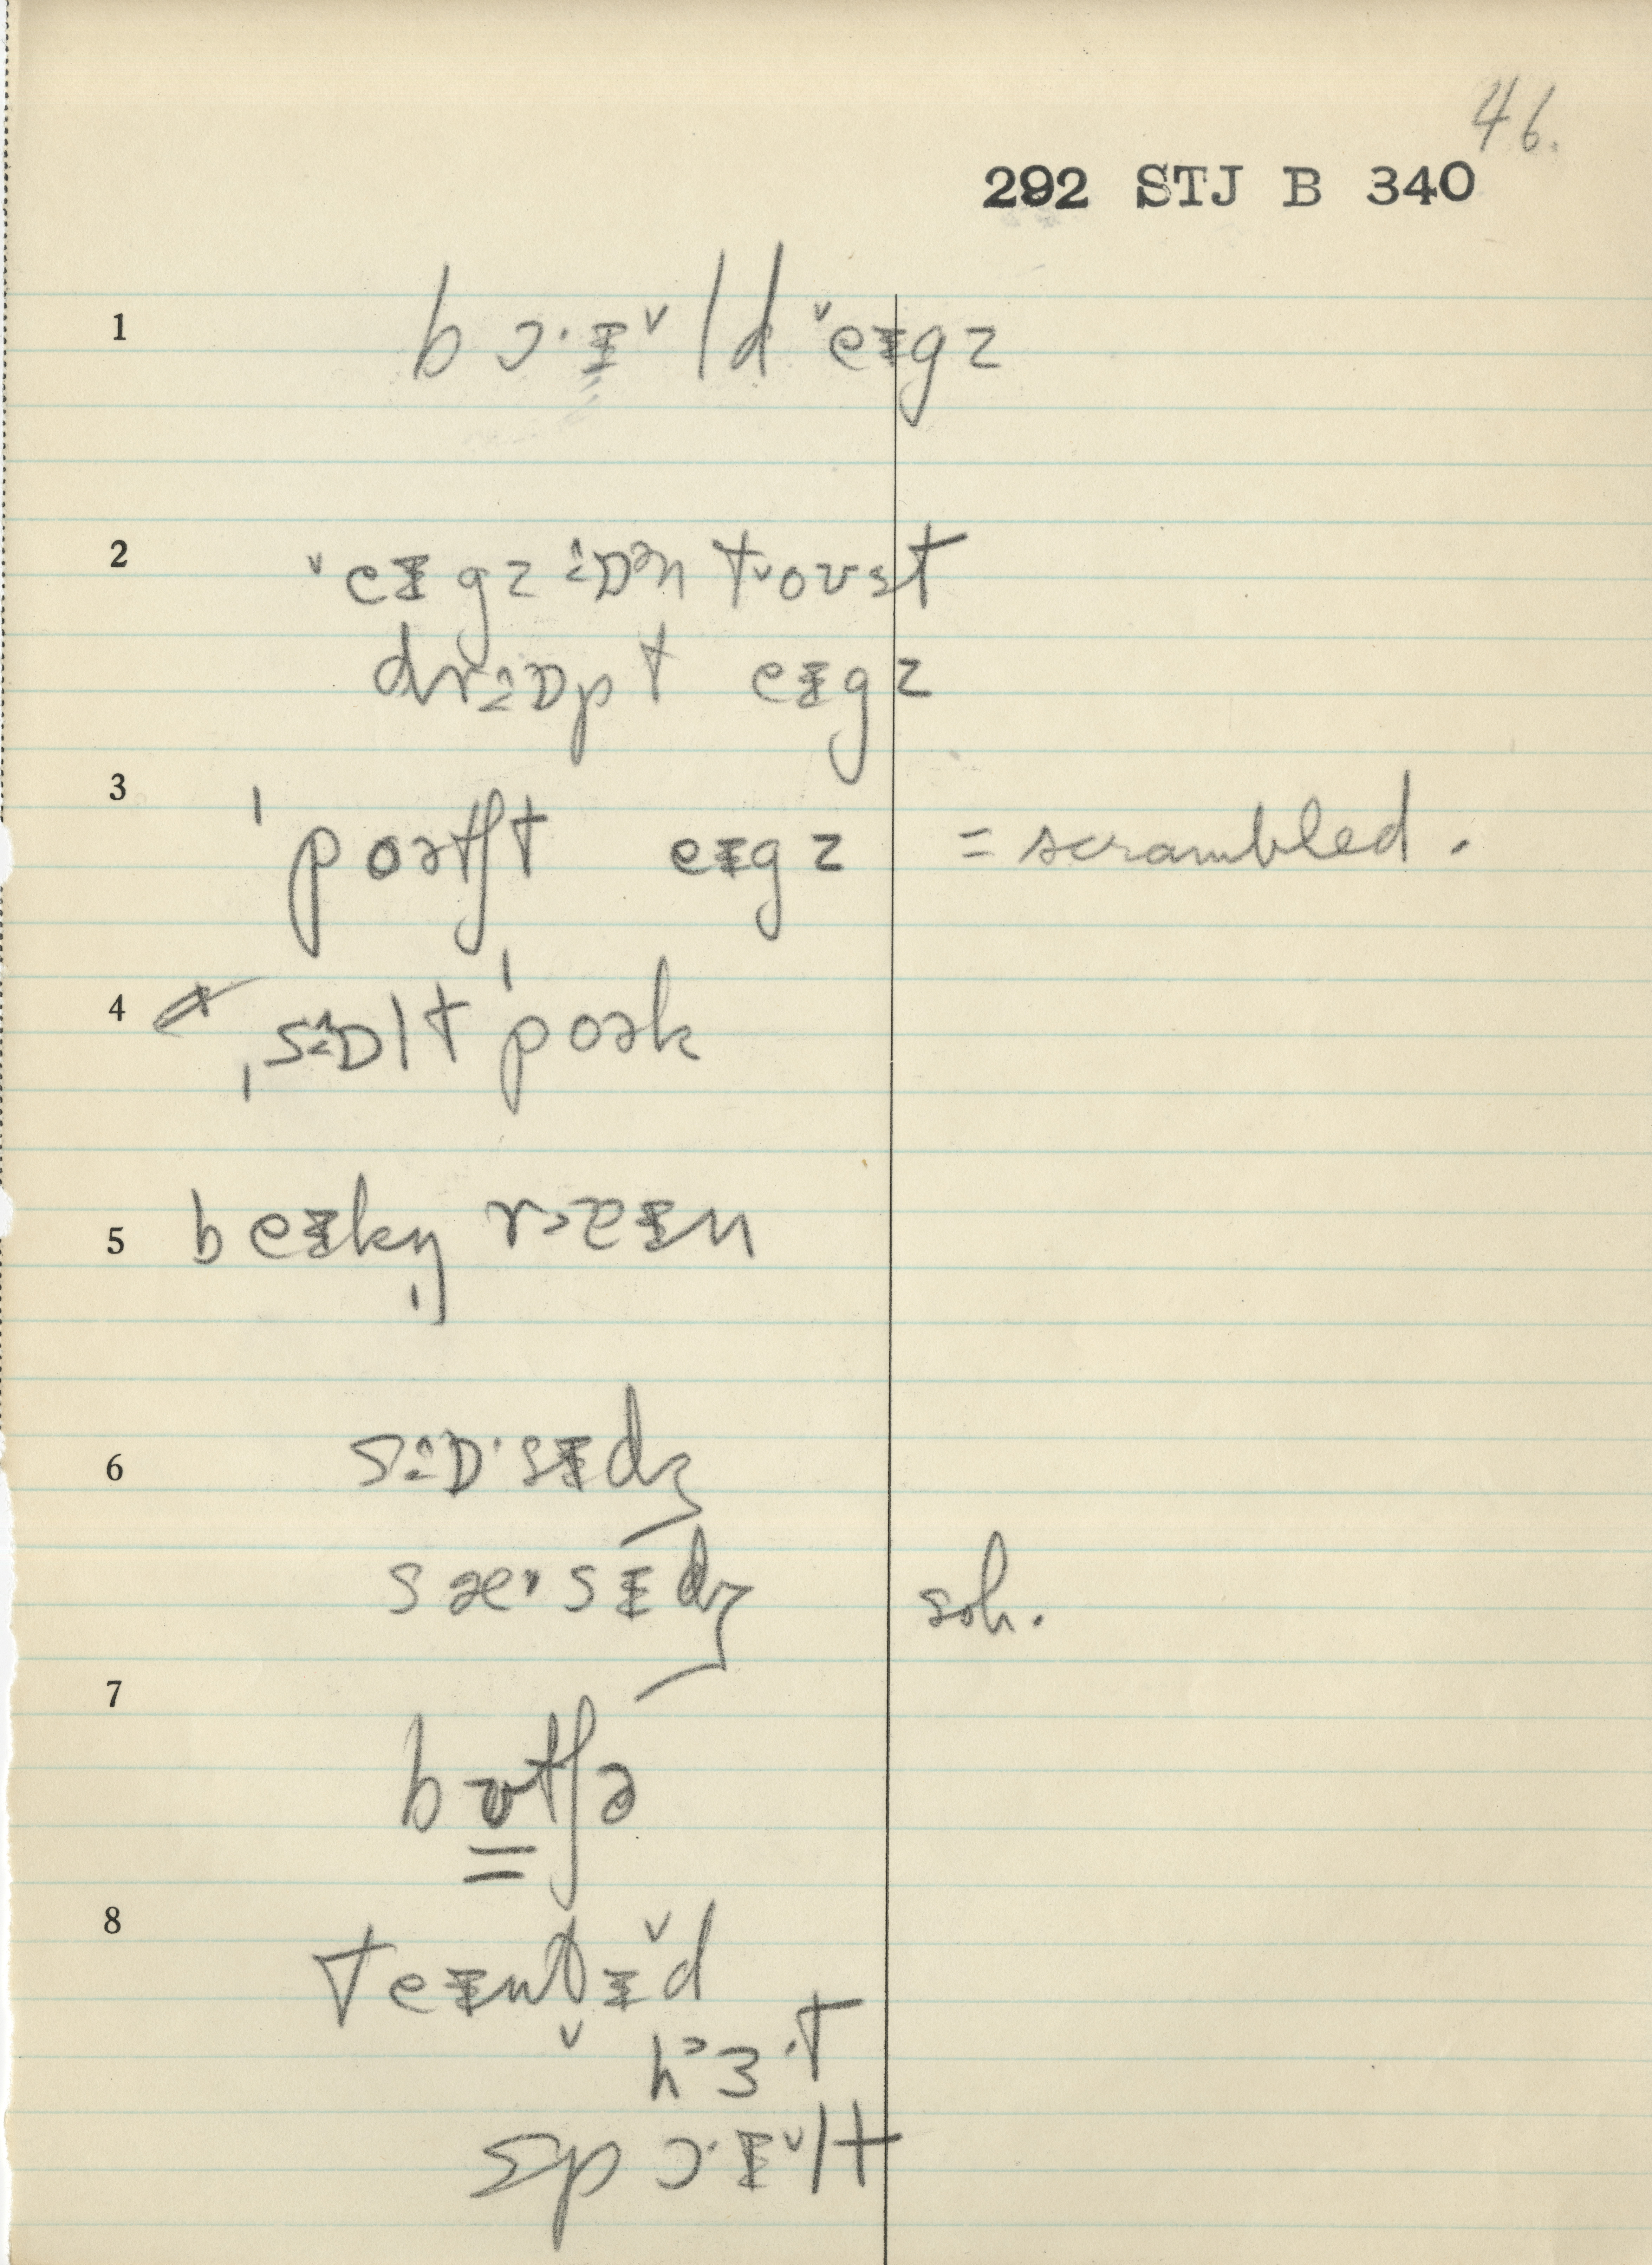 46.
292 STJ B 340
1 b ɔ·ɪ̵ˇld ˇeɪ̵gz
2 ˇeɪ̵gz ɒən tˇoʊst
drɒpt eɪ̵gz
3 ˈpoətʃt eɪ̵gz = scrambled.
4 ˌsɒlt ˈpoək
5 beɪ̵kŋ̩ r>eɪ̵n
6 sɒ·sɪ̵dʒ
sæ·sɪ̵dʒ soh.
7 bʊtʃə
8 teɪ̵nt̬ɪ̵ˇd
h ɜ·t
sp ɔ·ɪ̵ˇlt